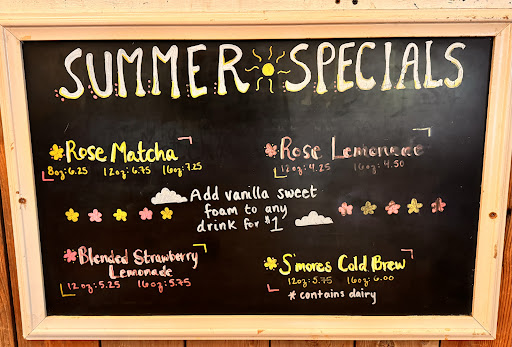 SUMMER SPECIALS
Rose Matcha
8oz: 6.25 12oz: 6.75 16oz: 7.25
Rose Lemonade
12oz: 4.25 16oz: 4.50
Add vanilla sweet
foam to any
drink for $1
Blended Strawberry
Lemonade
12oz: 5.25 16oz: 5.75
S'mores Cold Brew
12oz: 5.75 16oz: 6.00
* contains dairy